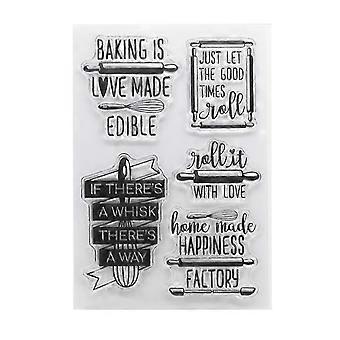 BAKING IS
LOVE MADE
EDIBLE
JUST LET
THE GOOD
TIMES
roll
IF THERE'S
A WHISK
THERE'S
A WAY
roll it
WITH LOVE
home made
HAPPINESS
FACTORY